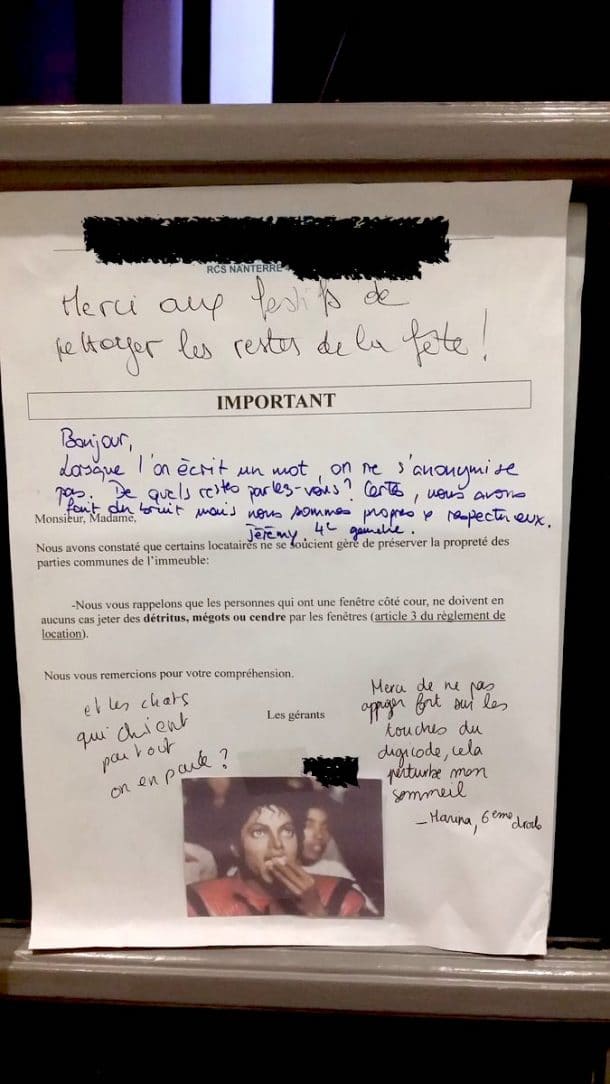 RCS NANTERRE
Merci aux festifs de
nettoyer les restes de la fête !
IMPORTANT
Bonjour,
Lorsque l'on écrit un mot, on ne s'anonymise
pas. De quels restes parlez-vous? Certes, nous avons
fait du bruit mais nous sommes propres & respectueux.
Jérémy. 4e gauche.
Monsieur, Madame,
Nous avons constaté que certains locataires ne se soucient gère de préserver la propreté des
parties communes de l'immeuble:
-Nous vous rappelons que les personnes qui ont une fenêtre côté cour, ne doivent en
aucuns cas jeter des détritus, mégots ou cendre par les fenêtres (article 3 du règlement de
location).
Nous vous remercions pour votre compréhension.
Les gérants
et les chats
qui chient
partout
on en parle ?
Merci de ne pas
appuyer fort sur les
touches du
digicode, cela
perturbe mon
sommeil
- Marina, 6eme droite